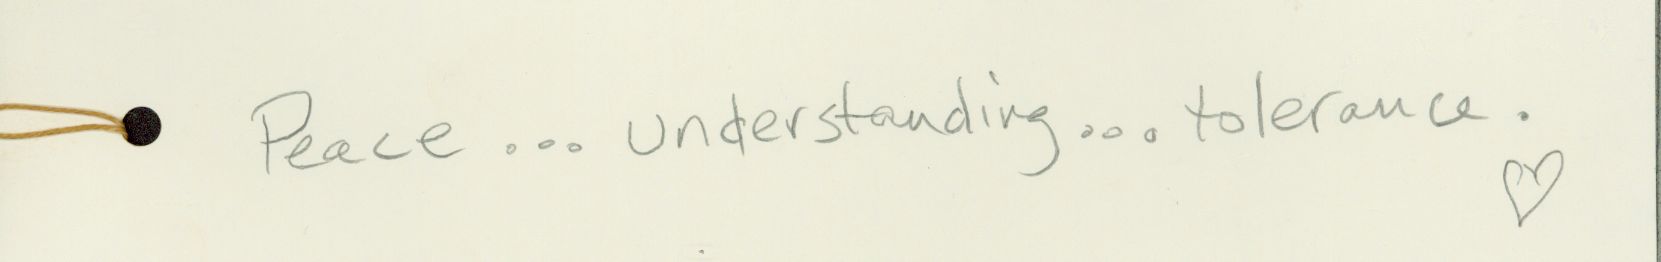 Peace... understanding... tolerance.
♡